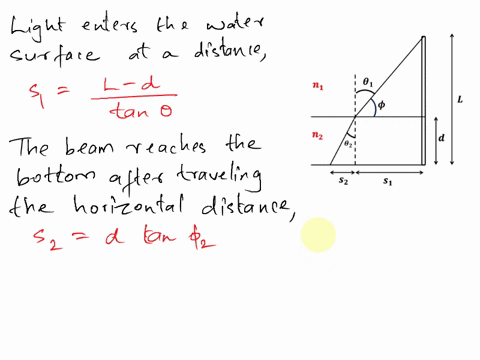 Light enters the water
surface at a distance,
s₁ = (L - d) / tan θ
The beam reaches the
bottom after traveling
the horizontal distance,
s₂ = d tan ϕ₂
n₁
θ₁
ϕ
L
n₂
θ₂
d
s₂
s₁